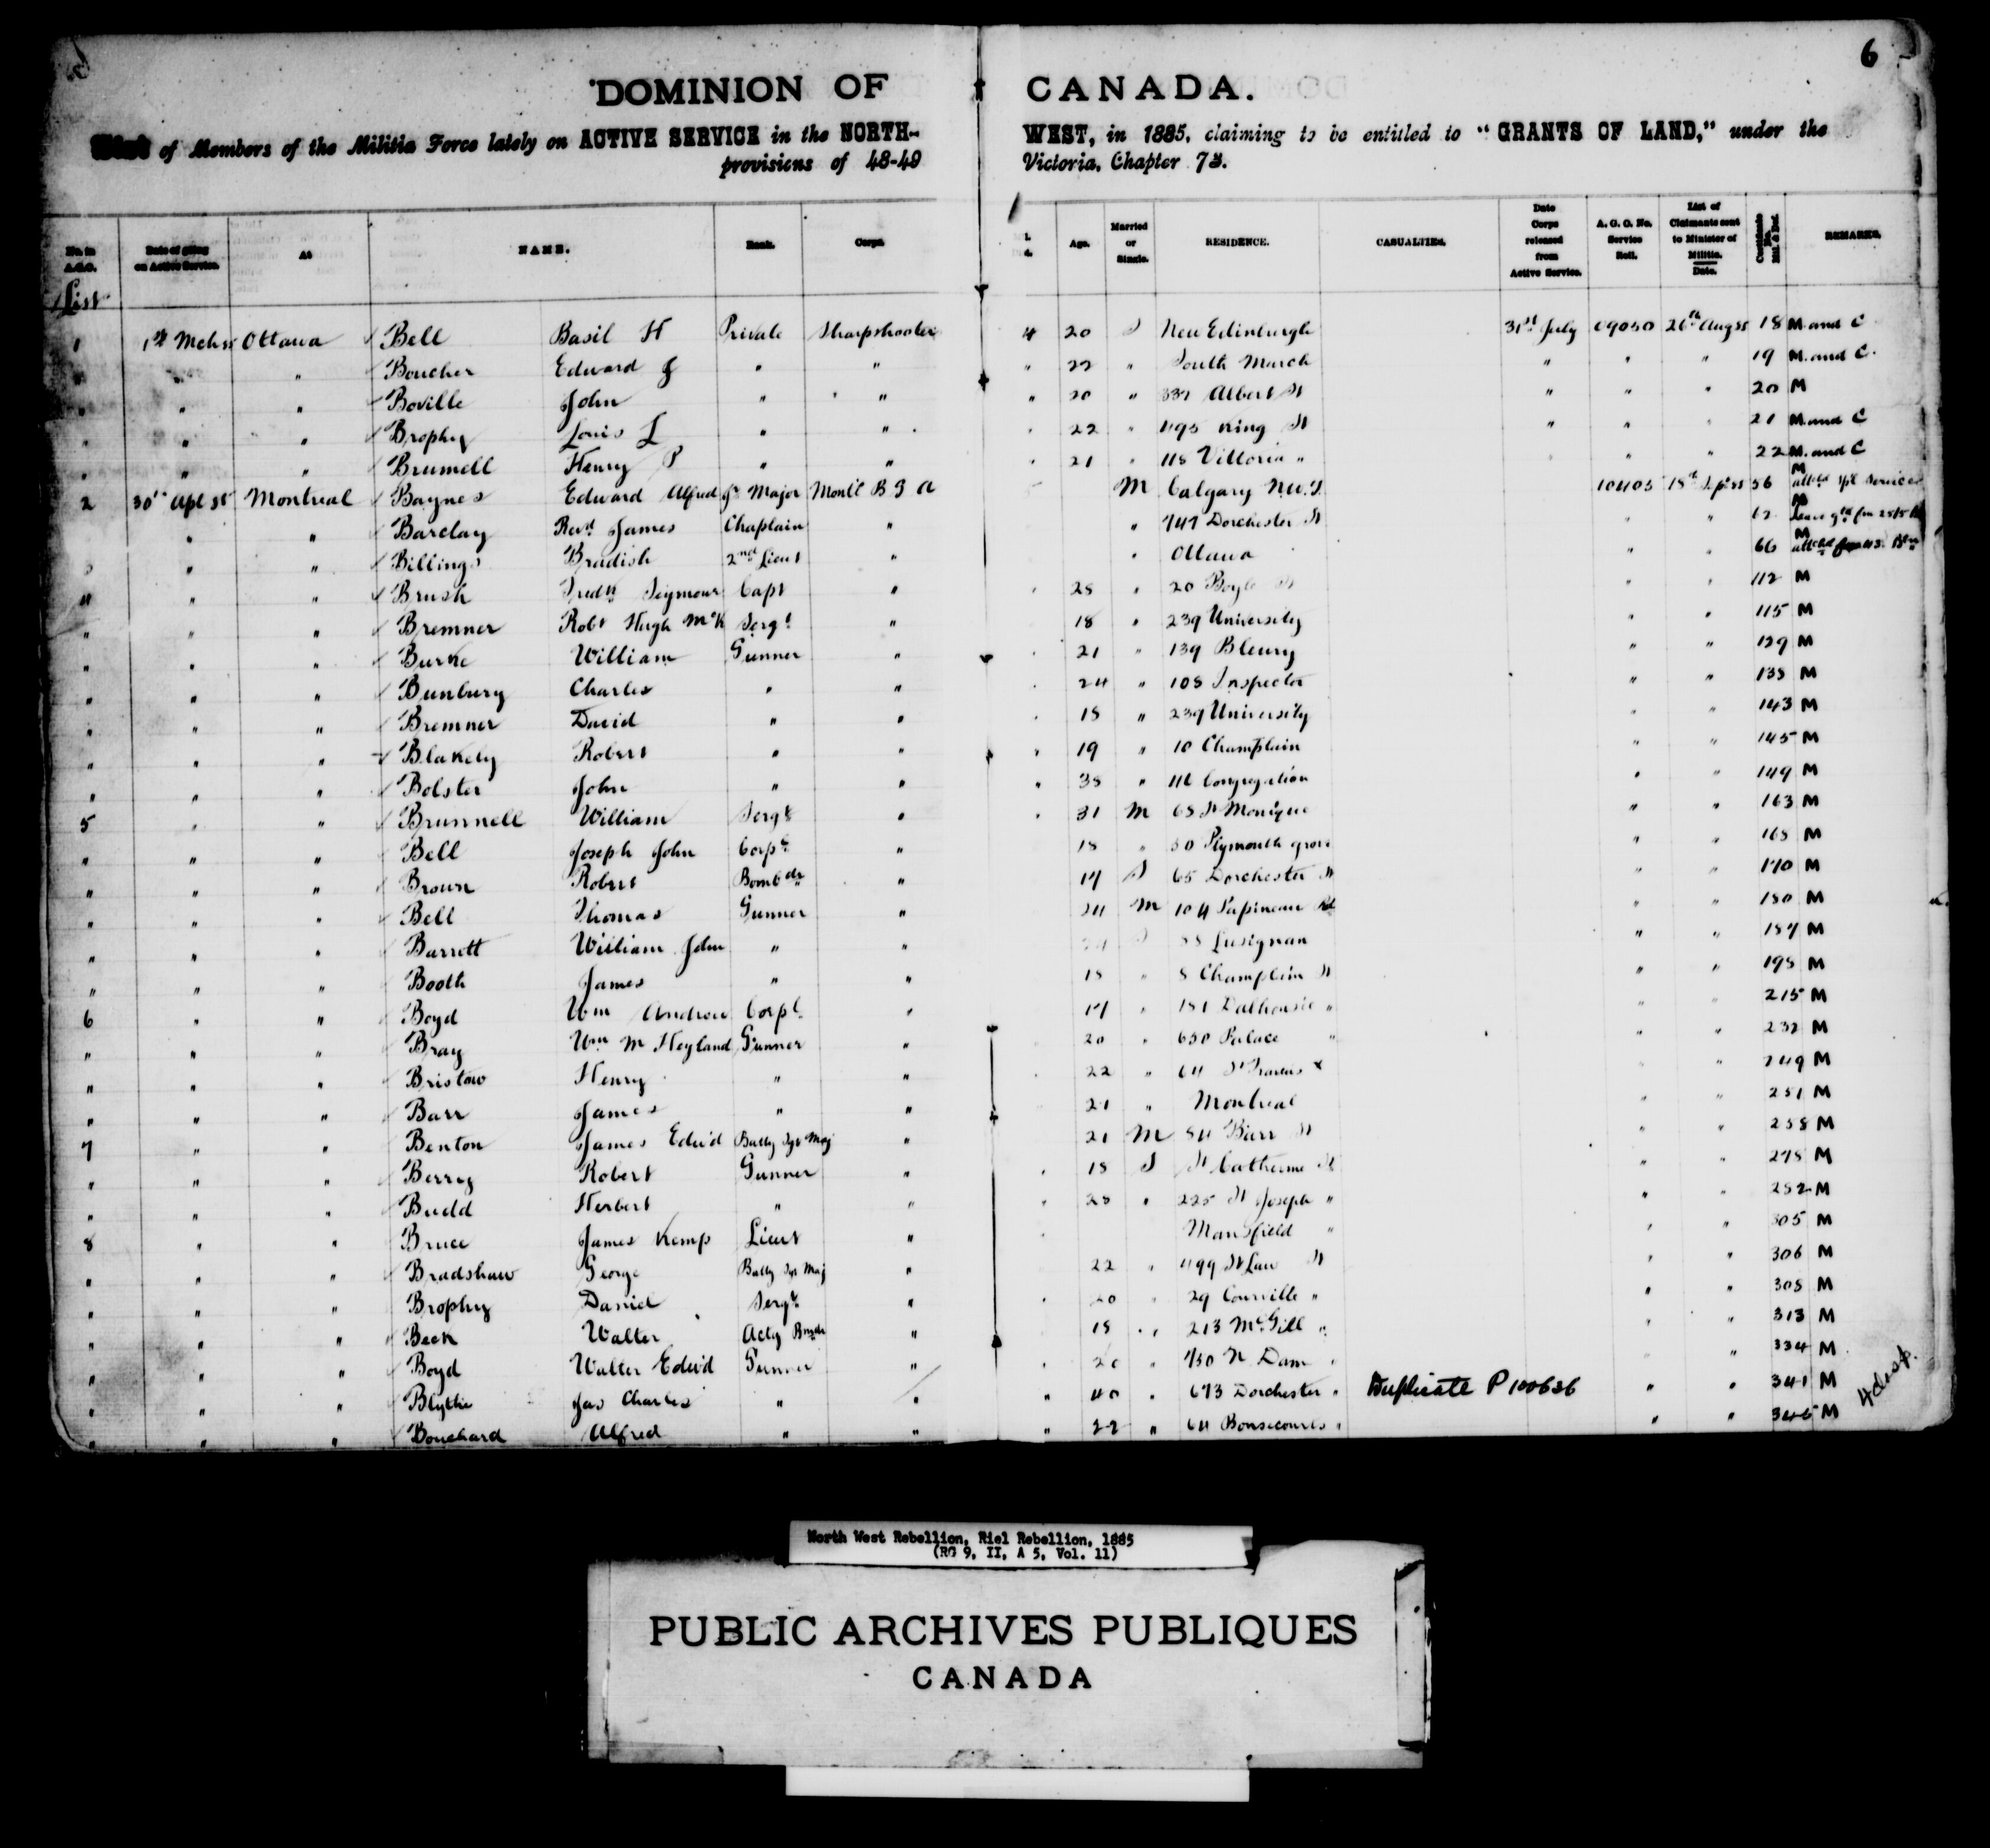 6
DOMINION OF CANADA.
List of Members of the Militia Force lately on ACTIVE SERVICE in the NORTH-WEST, in 1885, claiming to be entitled to "GRANTS OF LAND," under the
provisions of 48-49 Victoria, Chapter 73.
No. in A.G.O. List Date of going on Active Service. At NAME. Rank. Corps. Age. Married or Single. RESIDENCE. CASUALTIES. Date Corps released from Active Service. A. G. O. No. Service Roll. List of Claimants sent to Minister of Militia. Date. Certificate No. REMARKS.
1 Ottawa Bell Basil H Private Sharpshooters 4 20 S New Edinburgh 31st July 09050 26th Aug 85 18 M and C
" " " Boucher Edward J " " " 22 " South March " " " 19 M. and C.
" " " Boville John " " " 20 " 332 Albert St " " " 20 M
" " " Brophy Louis L " " " 22 " 495 King St " " " 21 M. and C
" " " Brumell Henry P " " " 21 " 118 Victoria " " " 22 M. and C
2 30th Apl 85 Montreal Baynes Edward Alfred Major Montl B G A M Calgary N.W.T. 10405 18th 56 M
" " Barclay Revd James Chaplain " " 747 Dorchester St " " 62 M
" " Billings Bradish 2nd Lieut " " Ottawa " " 66 M
4 " " Brush Fredk Seymour Capt " 28 " 20 Boyle St " " 112 M
" " " Bremner Robt Hugh McK Sergt " 18 " 239 University " " 115 M
" " " Burke William Gunner " 21 " 139 Bleury " " 129 M
" " " Bunbury Charles " " 24 " 108 Inspector " " 138 M
" " " Bremner David " " 18 " 239 University " " 143 M
" " " Blakely Robert " " 19 " 10 Champlain " " 145 M
" " " Bolster John " " 38 " 116 Congregation " " 149 M
5 " " Brunnell William Sergt " 31 M 68 St Monique " " 163 M
" " " Bell Joseph John Corpl " 18 " 50 Plymouth grove " " 168 M
" " " Brown Robert Bombdr " 17 S 65 Dorchester St " " 170 M
" " " Bell Thomas Gunner " 24 M 104 Papineau Rd " " 180 M
" " " Barrett William John " " 24 S 88 Lusignan " " 187 M
" " " Booth James " " 18 " 8 Champlain St " " 198 M
6 " " Boyd Wm Andrew Corpl " 17 " 181 Dalhousie " " " 215 M
" " " Bray Wm M Heyland Gunner " 20 " 650 Palace " " " 232 M
" " " Bristow Henry " " 22 " 64 " " 249 M
" " " Barr James " " 21 " Montreal " " 251 M
7 " " Benton James Edw'd Batty Sgt Maj " 21 M 84 Barr St " " 258 M
" " " Berry Robert Gunner " 18 S St Catherine St " " 278 M
" " " Budd Herbert " " 28 " 225 St Joseph " " " 282 M
8 " " Bruce James Kemp Lieut " Mansfield " " " 305 M
" " " Bradshaw George Batty Sgt Maj " 22 " 499 St Law St " " 306 M
" " " Brophy Daniel Sergt " 20 " 29 Courville " " " 308 M
" " " Beck Walter Actg Bmdr " 18 " 213 McGill " " " 313 M
" " " Boyd Walter Edw'd Gunner " 20 " 750 N Dam " " " 334 M
" " " Blythe Jas Charles " " " 40 " 673 Dorchester " Duplicate P 100626 " " 341 M
" " " Bouchard Alfred " " " 22 " 64 Bonsecours " " " 345 M
North West Rebellion, Riel Rebellion, 1885
(RG 9, II, A 5, Vol. 11)
PUBLIC ARCHIVES PUBLIQUES
CANADA